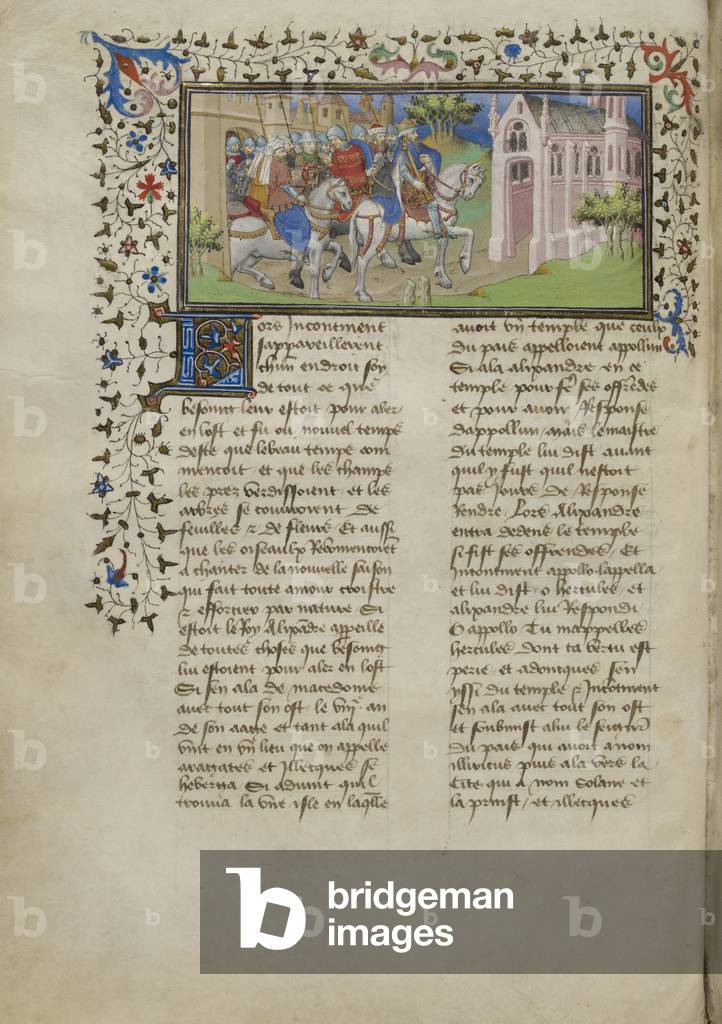 Lors Incontinent
sappareillerent
chun endroit soy
de tout ce que
besoing leur estoit pour aler
en lost et fu ou nouuel temps
deste que lebeau temps com
mencoit et que les champs
les prez verdissoient et les
arbres se couuroient de
feuilles z de fleurs Et aussi
que les oiseaulx Recomencoiet
a chanter de la nouuelle saison
qui fait toute amour croistre
z efforcier par nature Si
estoit le Roy Alixadre appeille
de toutes choses que besoing
lui estoient pour aler en lost
Si sen ala de macedoine
auec tout son ost le an
de son aage et tant ala quil
vint en vn lieu que on appelle
aragates et Illecques se
heberga Si aduint quil
trouua la vne isle en laqlle
auoit vn temple que ceulx
du pais appelloient appollin
Si ala alixandre en ce
temple pour fe ses offredes
et pour auoir Response
dappollin mais lemaistre
du temple lui dist auant
quil y fust quil nestoit
pas Jours De Response
Rendre Lors Alixandre
entra dedens le temple
si fist ses offrendes Et
Incontinent appollo lappella
et lui dist o hercules et
alixandre lui Respondi
O appollo Tu mappelles
hercules dont ta vertu est
perie et adoncques sen
yssi du temple z Incotinent
sen ala auec tout son ost
et soubmist a lui le
du pais qui auoit a nom
illiricus puis ala vers la
Cite qui a nom Solane et
la prinst et illecques
b bridgeman
images